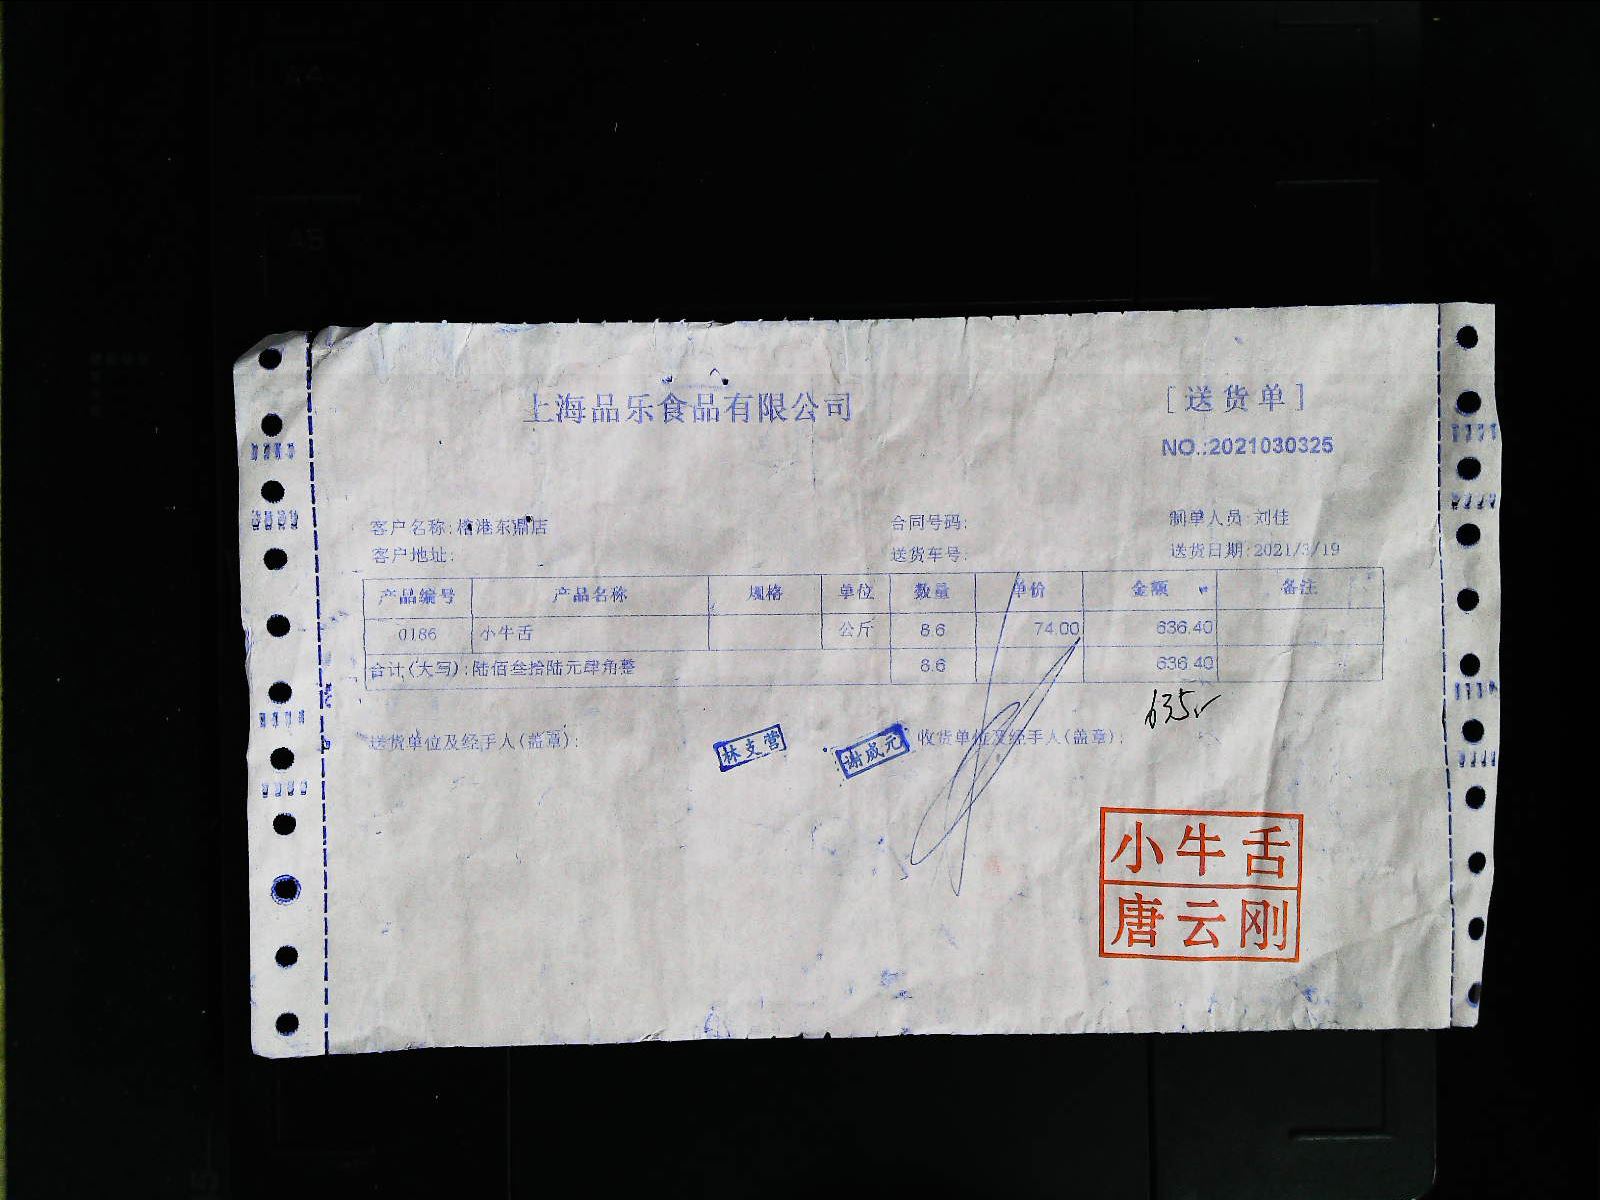 上海品乐食品有限公司
[送货单]
NO.:2021030325
客户名称:楮港东鼎店 合同号码: 制单人员:刘佳
客户地址: 送货车号: 送货日期:2021/3/19
产品编号 产品名称 规格 单位 数量 单价 金额 备注
0186 小牛舌 公斤 8.6 74.00 636.40
合计(大写):陆佰叁拾陆元肆角整 8.6 636.40
635
送货单位及经手人(盖章): 林支营 谢成元 收货单位及经手人(盖章):
小牛舌
唐云刚